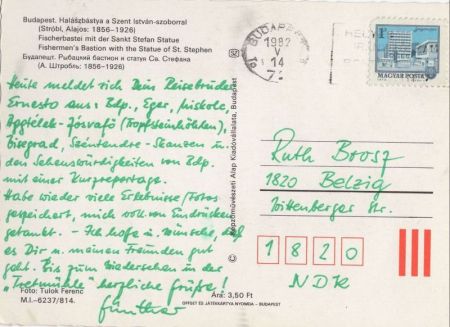 Budapest. Halászbástya a Szent István-szoborral
(Stróbl, Alajos: 1856–1926)
Fischerbastei mit der Sankt Stefan Statue
Fishermen's Bastion with the Statue of St. Stephen
Будапешт. Рыбацкий бастион и статуя Св. Стефана
(А. Штробль: 1856–1926)
Heute meldet sich Dein Reisebruder
Ernesto aus: Bdp., Eger, Miskolc,
Aggtelek-Jósvafő (Tropfsteinhöhlen),
Visegrad, Szentendre-Skanzen u.
den Sehenswürdigkeiten von Bdp.
mit einer Kurzreportage.
Habe wieder viel Erlebnisse/Fotos
gespeichert, mich voll von Eindrücken
getankt. – Ich hoffe u. wünsche, daß
es Dir u. meinen Freunden gut
geht. Bis zum Wiedersehen in der
"Tretmühle" herzliche Grüße!
Günther
Foto: Tulok Ferenc
M.I.–6237/814.
Képzőművészeti Alap Kiadóvállalata, Budapest
BUDAPEST
1982
V
14
MAGYAR POSTA
Ruth Broosz
1820 Belzig
Wittenberger Str.
1820
NDK
Ára: 3,50 Ft
OFFSET ÉS JÁTÉKKÁRTYA NYOMDA – BUDAPEST